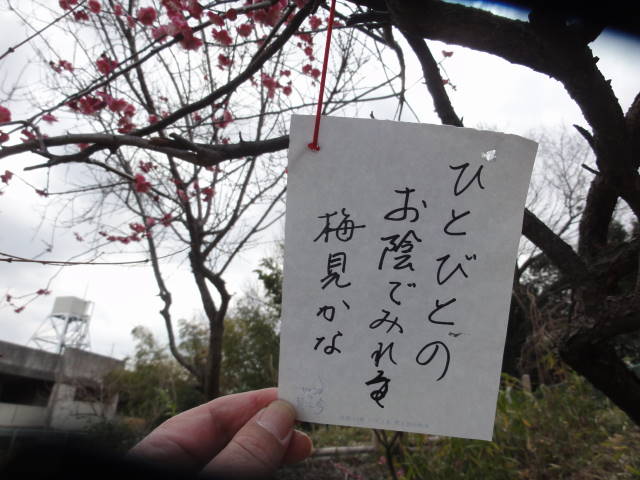 ひとびとの
お陰でみれる
梅見かな